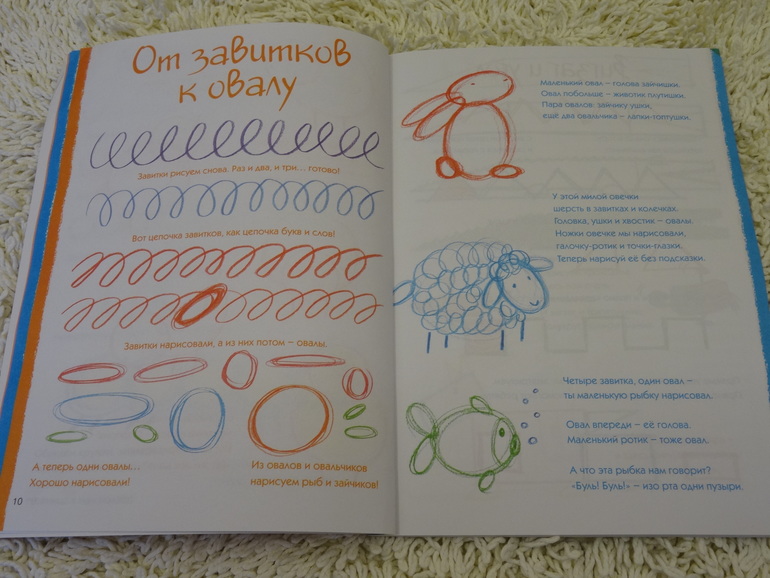 От завитков
к овалу
Завитки рисуем снова. Раз и два, и три... готово!
Вот цепочка завитков, как цепочка букв и слов!
Завитки нарисовали, а из них потом – овалы.
А теперь одни овалы...
Хорошо нарисовали!
Из овалов и овальчиков
нарисуем рыб и зайчиков!
10
Маленький овал – голова зайчишки.
Овал побольше – животик плутишки.
Пара овалов: зайчику ушки,
ещё два овальчика – лапки-топтушки.
У этой милой овечки
шерсть в завитках и колечках.
Головка, ушки и хвостик – овалы.
Ножки овечке мы нарисовали,
галочку-ротик и точки-глазки.
Теперь нарисуй её без подсказки.
Четыре завитка, один овал –
ты маленькую рыбку нарисовал.
Овал впереди – её голова.
Маленький ротик – тоже овал.
А что эта рыбка нам говорит?
«Буль! Буль!» – изо рта одни пузыри.